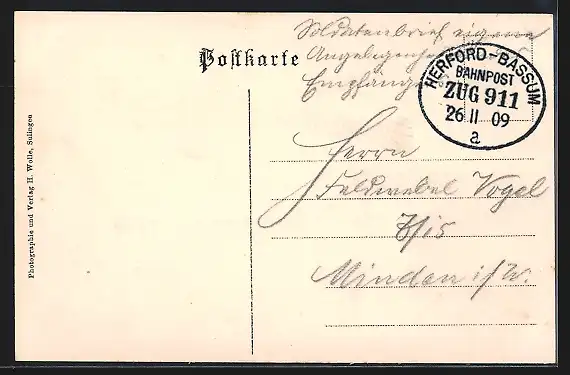 Soldatenbrief eigene
Angelegenheit
Empfänger
Postkarte
HERFORD-BASSUM
BAHNPOST
ZUG 911
26 11 09
a
Herrn
Feldwebel Vogel
Minden i/W.
Photographie und Verlag H. Wolle, Solingen